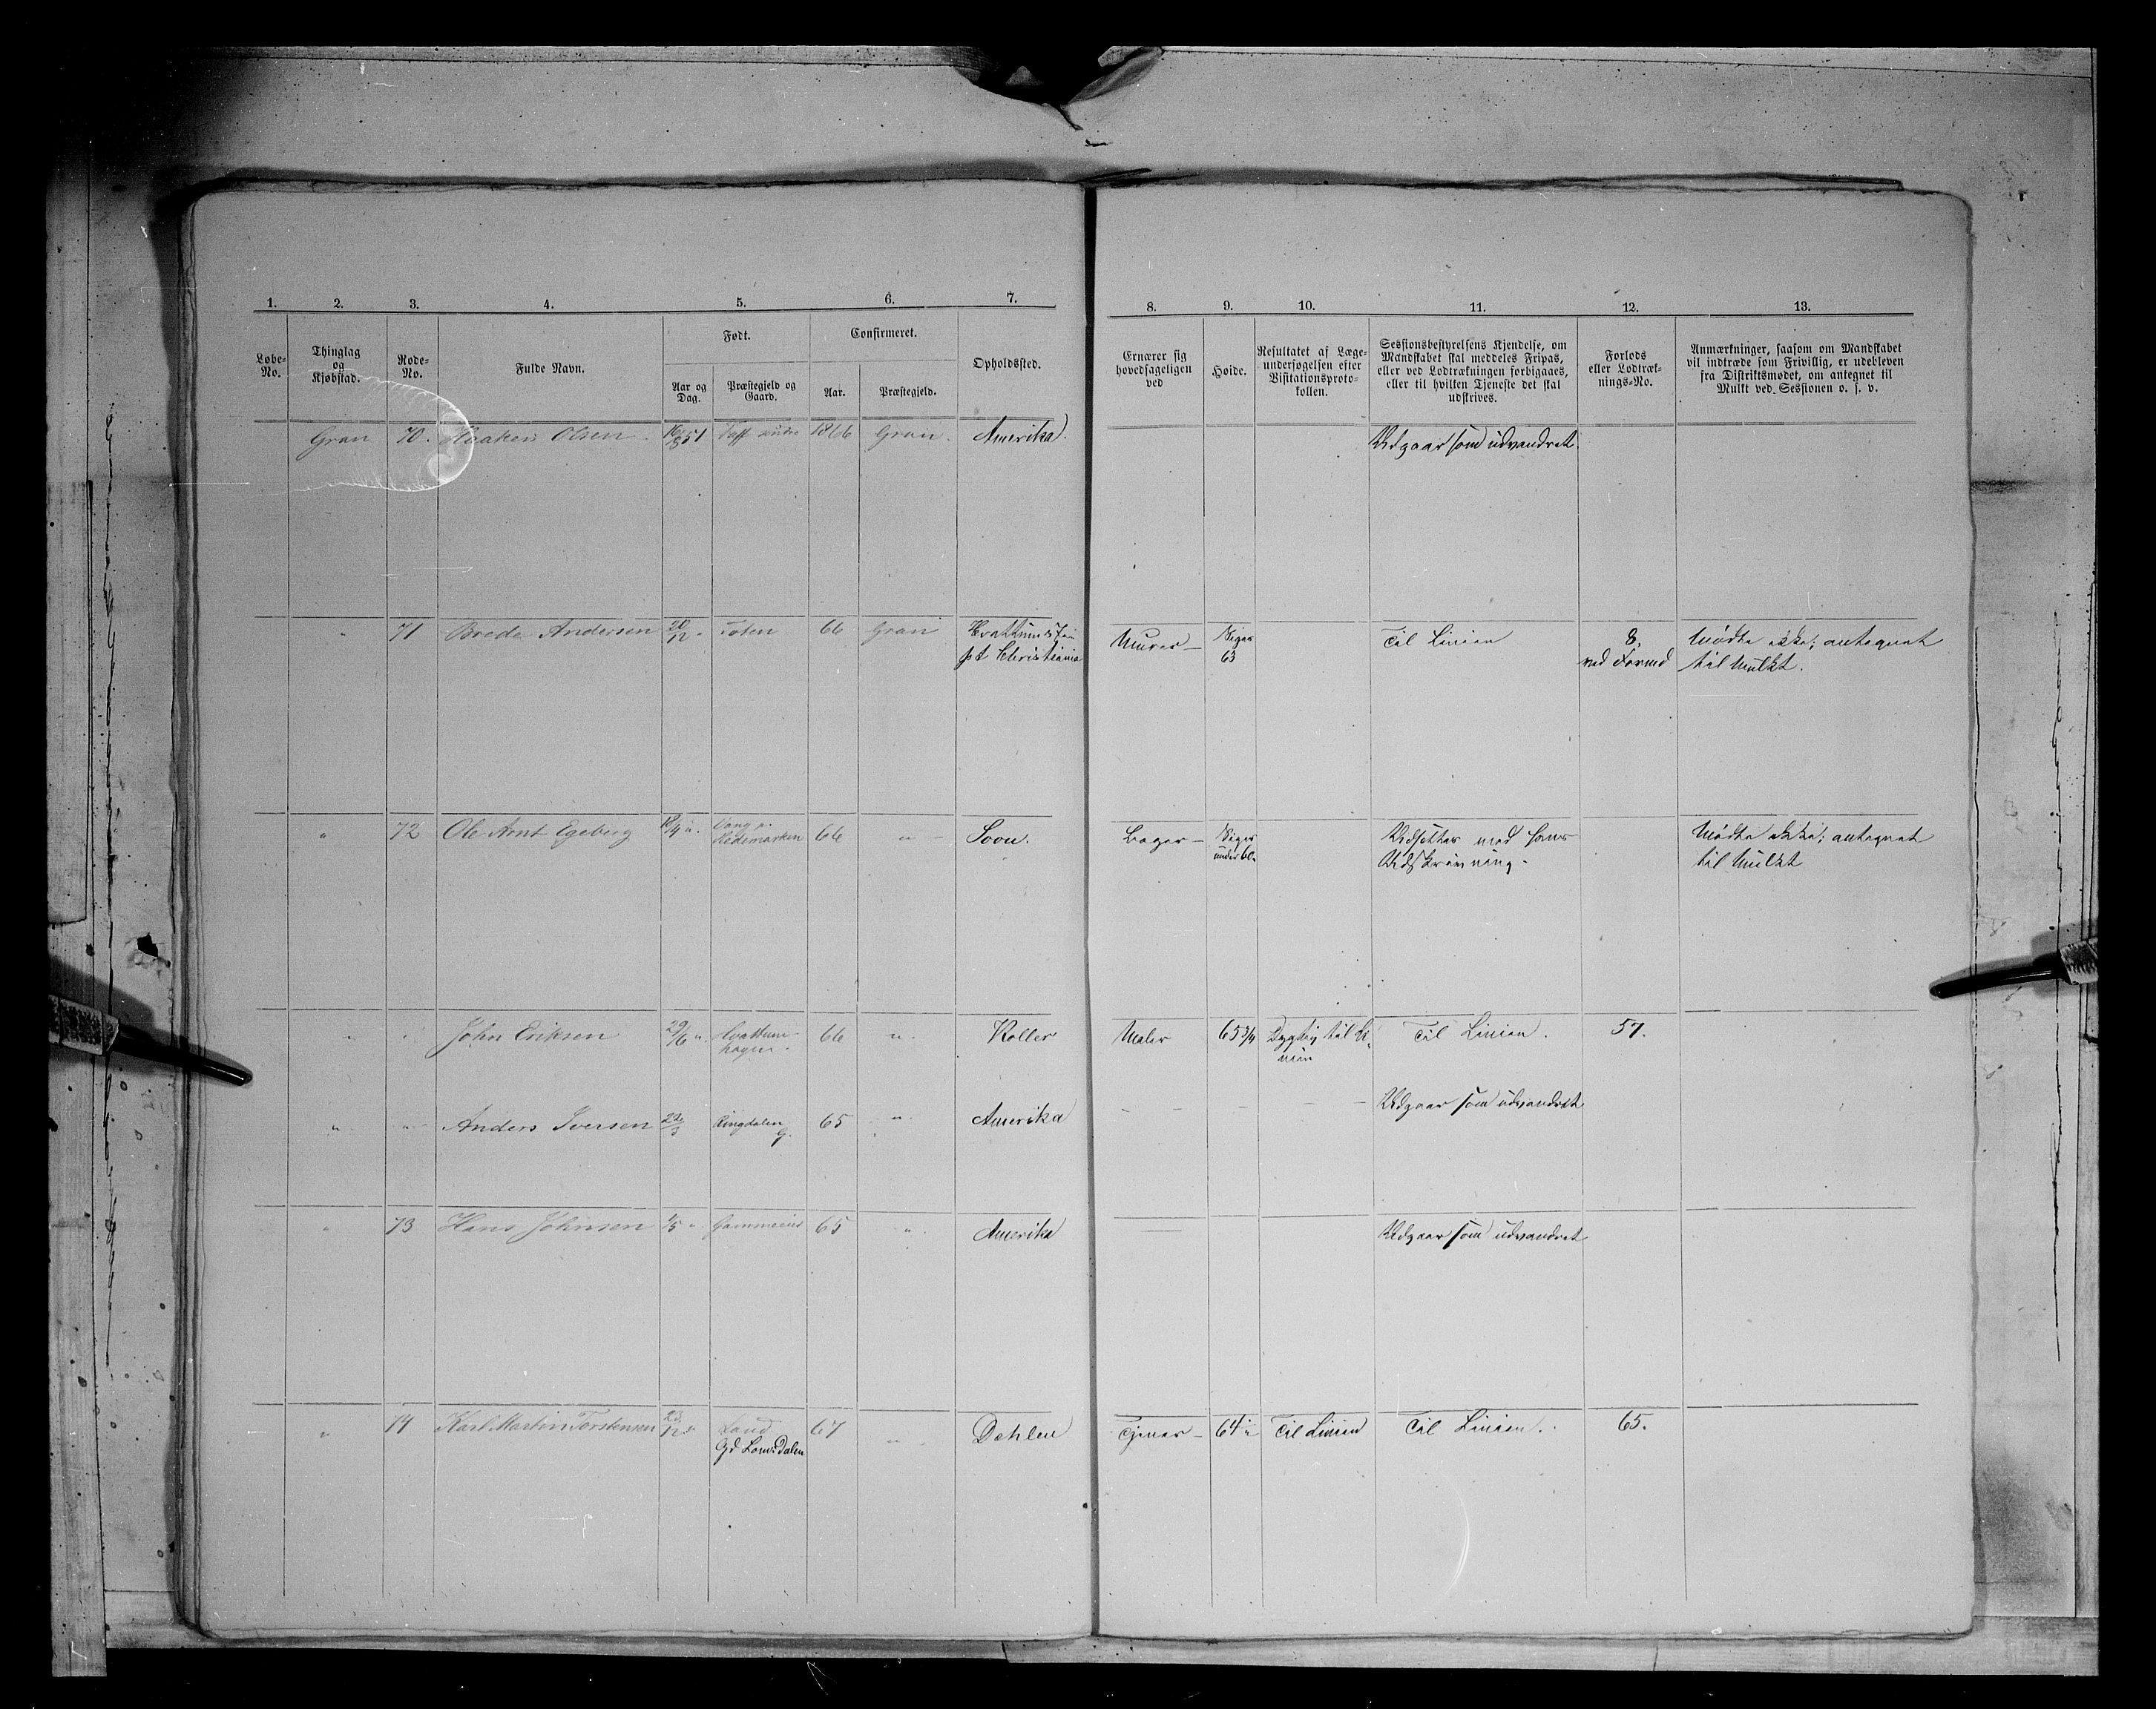 1. 2. 3. 4. 5. 6. 7. 8. 9. 10. 11. 12. 13.
Løbe-No.
Thinglag og Kjøbstad.
Rode-No.
Fulde Navn.
Født.
Aar og Dag.
Præstegjeld og Gaard.
Confirmeret.
Aar.
Præstegjeld.
Opholdssted.
Ernærer sig hovedsageligen ved
Høide.
Resultatet af Læge-undersøgelsen efter Visitationsproto-kollen.
Sessionsbestyrelsens Kjendelse, om Mandskabet skal meddeles Fripas, eller ved Lodtrækningen forbigaaes, eller til hvilken Tjeneste det skal udskrives.
Forlods eller Lodtræk-nings-No.
Anmærkninger, saasom om Mandskabet vil indtræde som Frivillig, er udebleven fra Distriktsmødet, om antegnet til Mulkt ved Sessionen o. s. v.
Gran 70. Haaken Olsen. 51 1866 Gran. Amerika. Udgaar som udvandret.
" 71 Brede Andersen 20/12 " Toten 66 Gran Hvattumseie Murer - Siges 63 Til Linien 8. Mødte ikke; antegnet
pt Christiania ved Forned til Mulkt.
" 72 Ole Arnt Egeberg 18/4 ". Vang p. Hedemarken 66 " Soon. Bager - Siges under 60. Udsættes med hans Mødte ikke; antegnet
Udskrivning. til Mulkt
" " John Eriksen 29/6 ". Hvattum-hagen. 66 ". Koller Maler 65 3/4 Dygtig til Li-nien Til Linien. 57.
" " Anders Iversen Ringdalen G. 65 ". Amerika - - - - - Udgaar som udvandret
" 73 Hans Johnsen 1/5 " 65 ". Amerika Udgaar som udvandret
" 74 Karl Martin Torstensen 23/12 " Land 67 " Dæhlen Tjener - 64 " Til Linien Til Linien. 65.
Gd